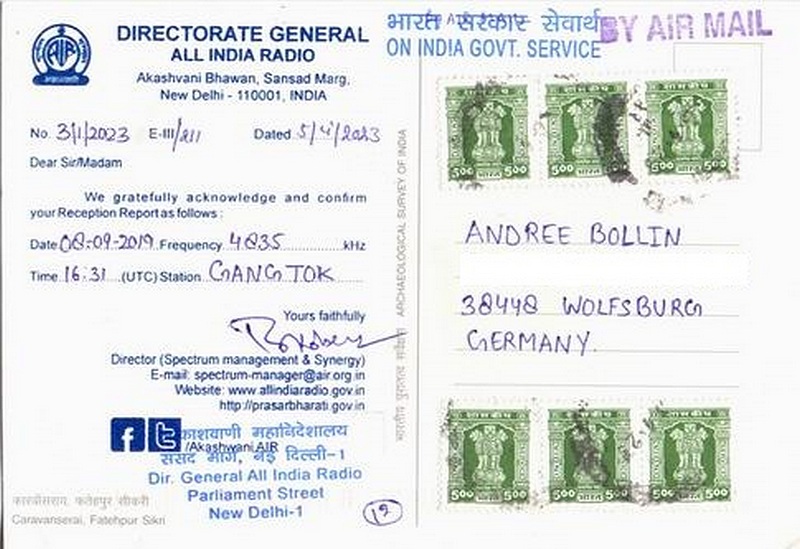 DIRECTORATE GENERAL
ALL INDIA RADIO
Akashvani Bhawan, Sansad Marg,
New Delhi - 110001, INDIA
No. 3/1/2023 E-III/211 Dated 5/4/2023
Dear Sir/Madam
We gratefully acknowledge and confirm
your Reception Report as follows :
Date 08-09-2019 Frequency 4835 kHz
Time 16:31 (UTC) Station GANGTOK
Yours faithfully
Director (Spectrum management & Synergy)
E-mail: spectrum-manager@air.org.in
Website: www.allindiaradio.gov.in
http://prasarbharati.gov.in
/Akashwani.AIR
काशवाणी महानिदेशालय
संसद मार्ग, नई दिल्ली-1
Dir. General All India Radio
Parliament Street
New Delhi-1
कारवांसराय, फतेहपुर सीकरी
Caravanserai, Fatehpur Sikri
12
भारतीय पुरातत्व सर्वेक्षण ARCHAEOLOGICAL SURVEY OF INDIA
भारत सरकार सेवार्थ
ON INDIA GOVT. SERVICE
BY AIR MAIL
500 भारत 500
500 भारत 500
500 भारत 500
ANDREE BOLLIN
38448 WOLFSBURG
GERMANY.
500 भारत 500
500 भारत 500
500 भारत 500